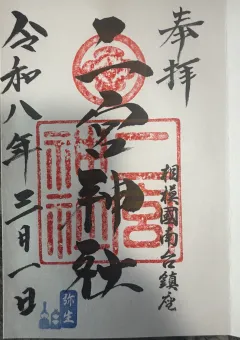 奉拝
相模國南台鎮座
二宮神社
令和八年三月一日
弥生